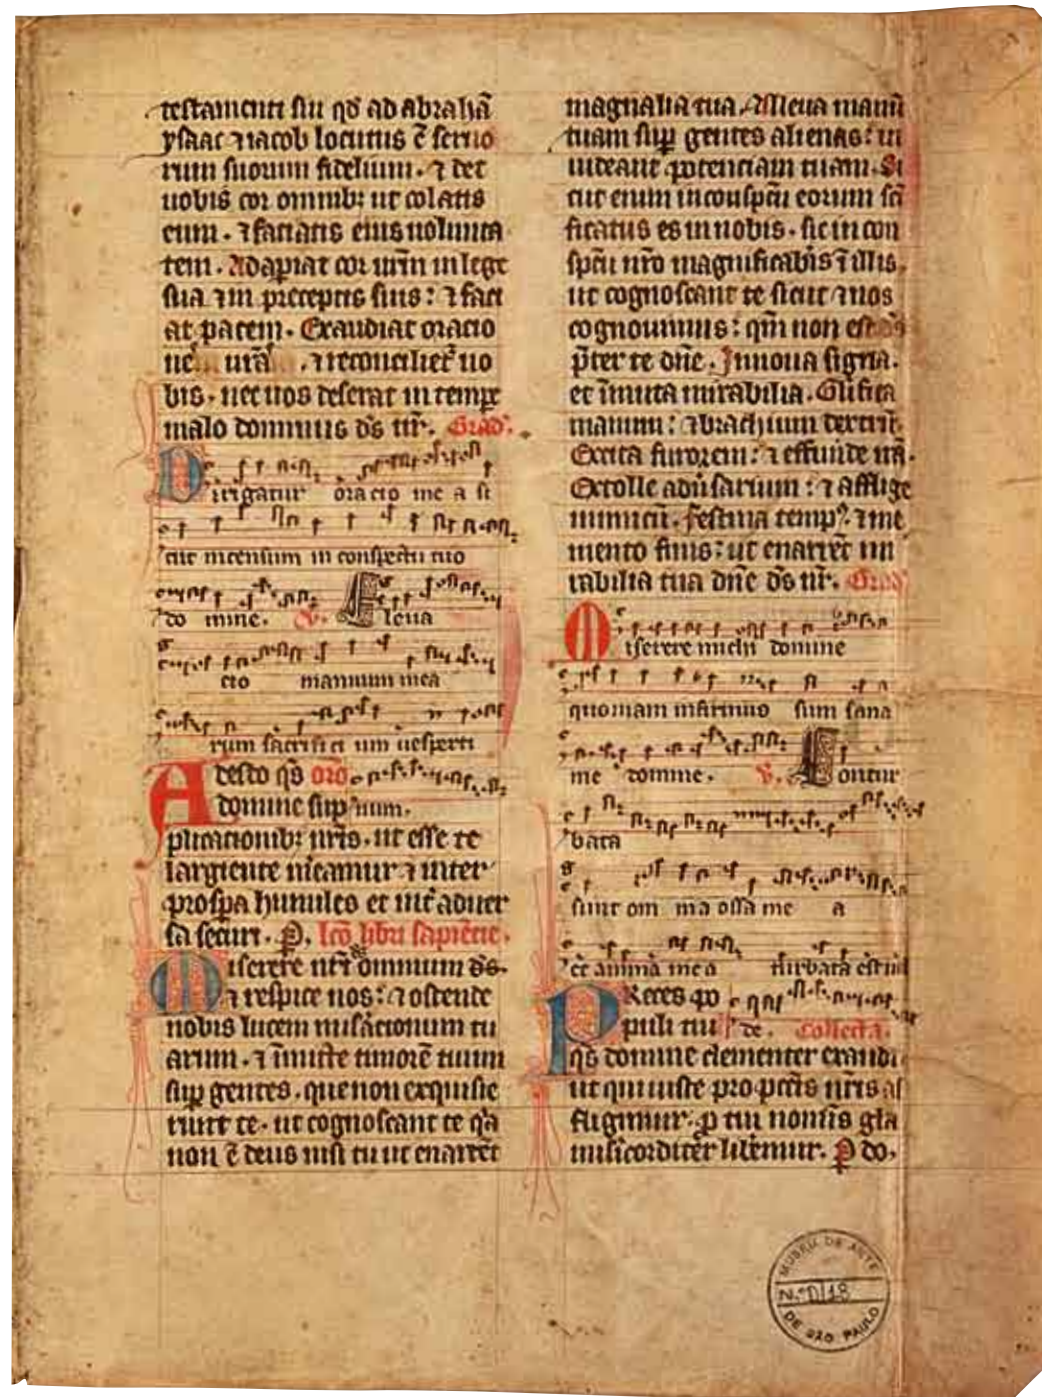 testamenti sui qd̄ ad abrahā
ysaac ⁊ iacob locutus ē seruo
rum suorum fidelium. ⁊ det
uobis cor omnibꝫ ut colatis
eum. ⁊ faciatis eius uolunta
tem. Adapiat cor ur̄m in lege
sua ⁊ in preceptis suis: ⁊ faci
at pacem. Exaudiat oracio
nē urā. ⁊ reconcilieť uo
bis. nec uos deserat in tempe
malo dominus ds̄ nr̄. Grad̄.
Dirigatur oracio me a si
cut incensum in conspectu tuo
do mine. V. Eleua
cio manuum mea
rum sacrifici um uesperti
Adesto qs̄ oro̅
domine sup num.
plicationibꝫ nr̄is. ut esse te
largiente mēamur ⁊ inter
prospa humiles et int̄ aduer
sa securi. P. Lcō libri sapiētie.
Miserere nr̄i omnium ds̄.
⁊ respice nos: ⁊ ostende
nobis lucem mis̄acionum tu
arum. ⁊ īmicte timorē tuum
sup gentes. que non exquisie
runt te. ut cognoscant te qa
non ē deus nisi tu ut enarrēt
magnalia tua. Alleua manū
tuam sup gentes alienas: ut
uideant potenciam tuam. Si
cut enim in conspcū eorum sc̄i
ficatus es in nobis. sic in con
spcū nr̄o magnificabis ī illis.
ut cognoscant te sicut ⁊ nos
cognouimus: qm̄ non est ds̄
p̄ter te dn̄e. Innoua signa.
et īmuta mirabilia. Gl̄ifica
manum: ⁊ brachium dextrū.
Excita furorem: ⁊ effunde irā.
Extolle adūsarium: ⁊ afflige
inimicū. festina temp9. ⁊ me
mento finis: ut enarrēt mi
rabilia tua dn̄e ds̄ nr̄. Grad̄
Miserere michi domine
quoniam infirmus sum sana
me domine. V. Contur
bata
sunt om nia ossa me a
et anima mea turbata est ual
Preces po
puli tui de. Collecta.
qs̄ domine clementer exaudi
ut qui iuste pro pcc̄is nr̄is af
fligimur. p tui nom̄is gl̄a
mis̄icorditer lib̄emur. P do.
MUSEU DE ARTE
N.º D|18
DE SÃO PAULO